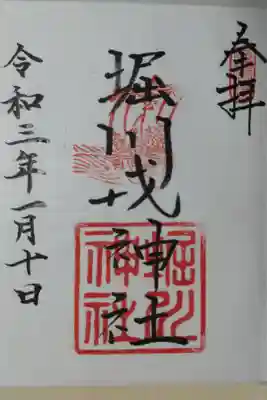 奉拝
堀川戎神社
堀川
神社
令和三年一月十日